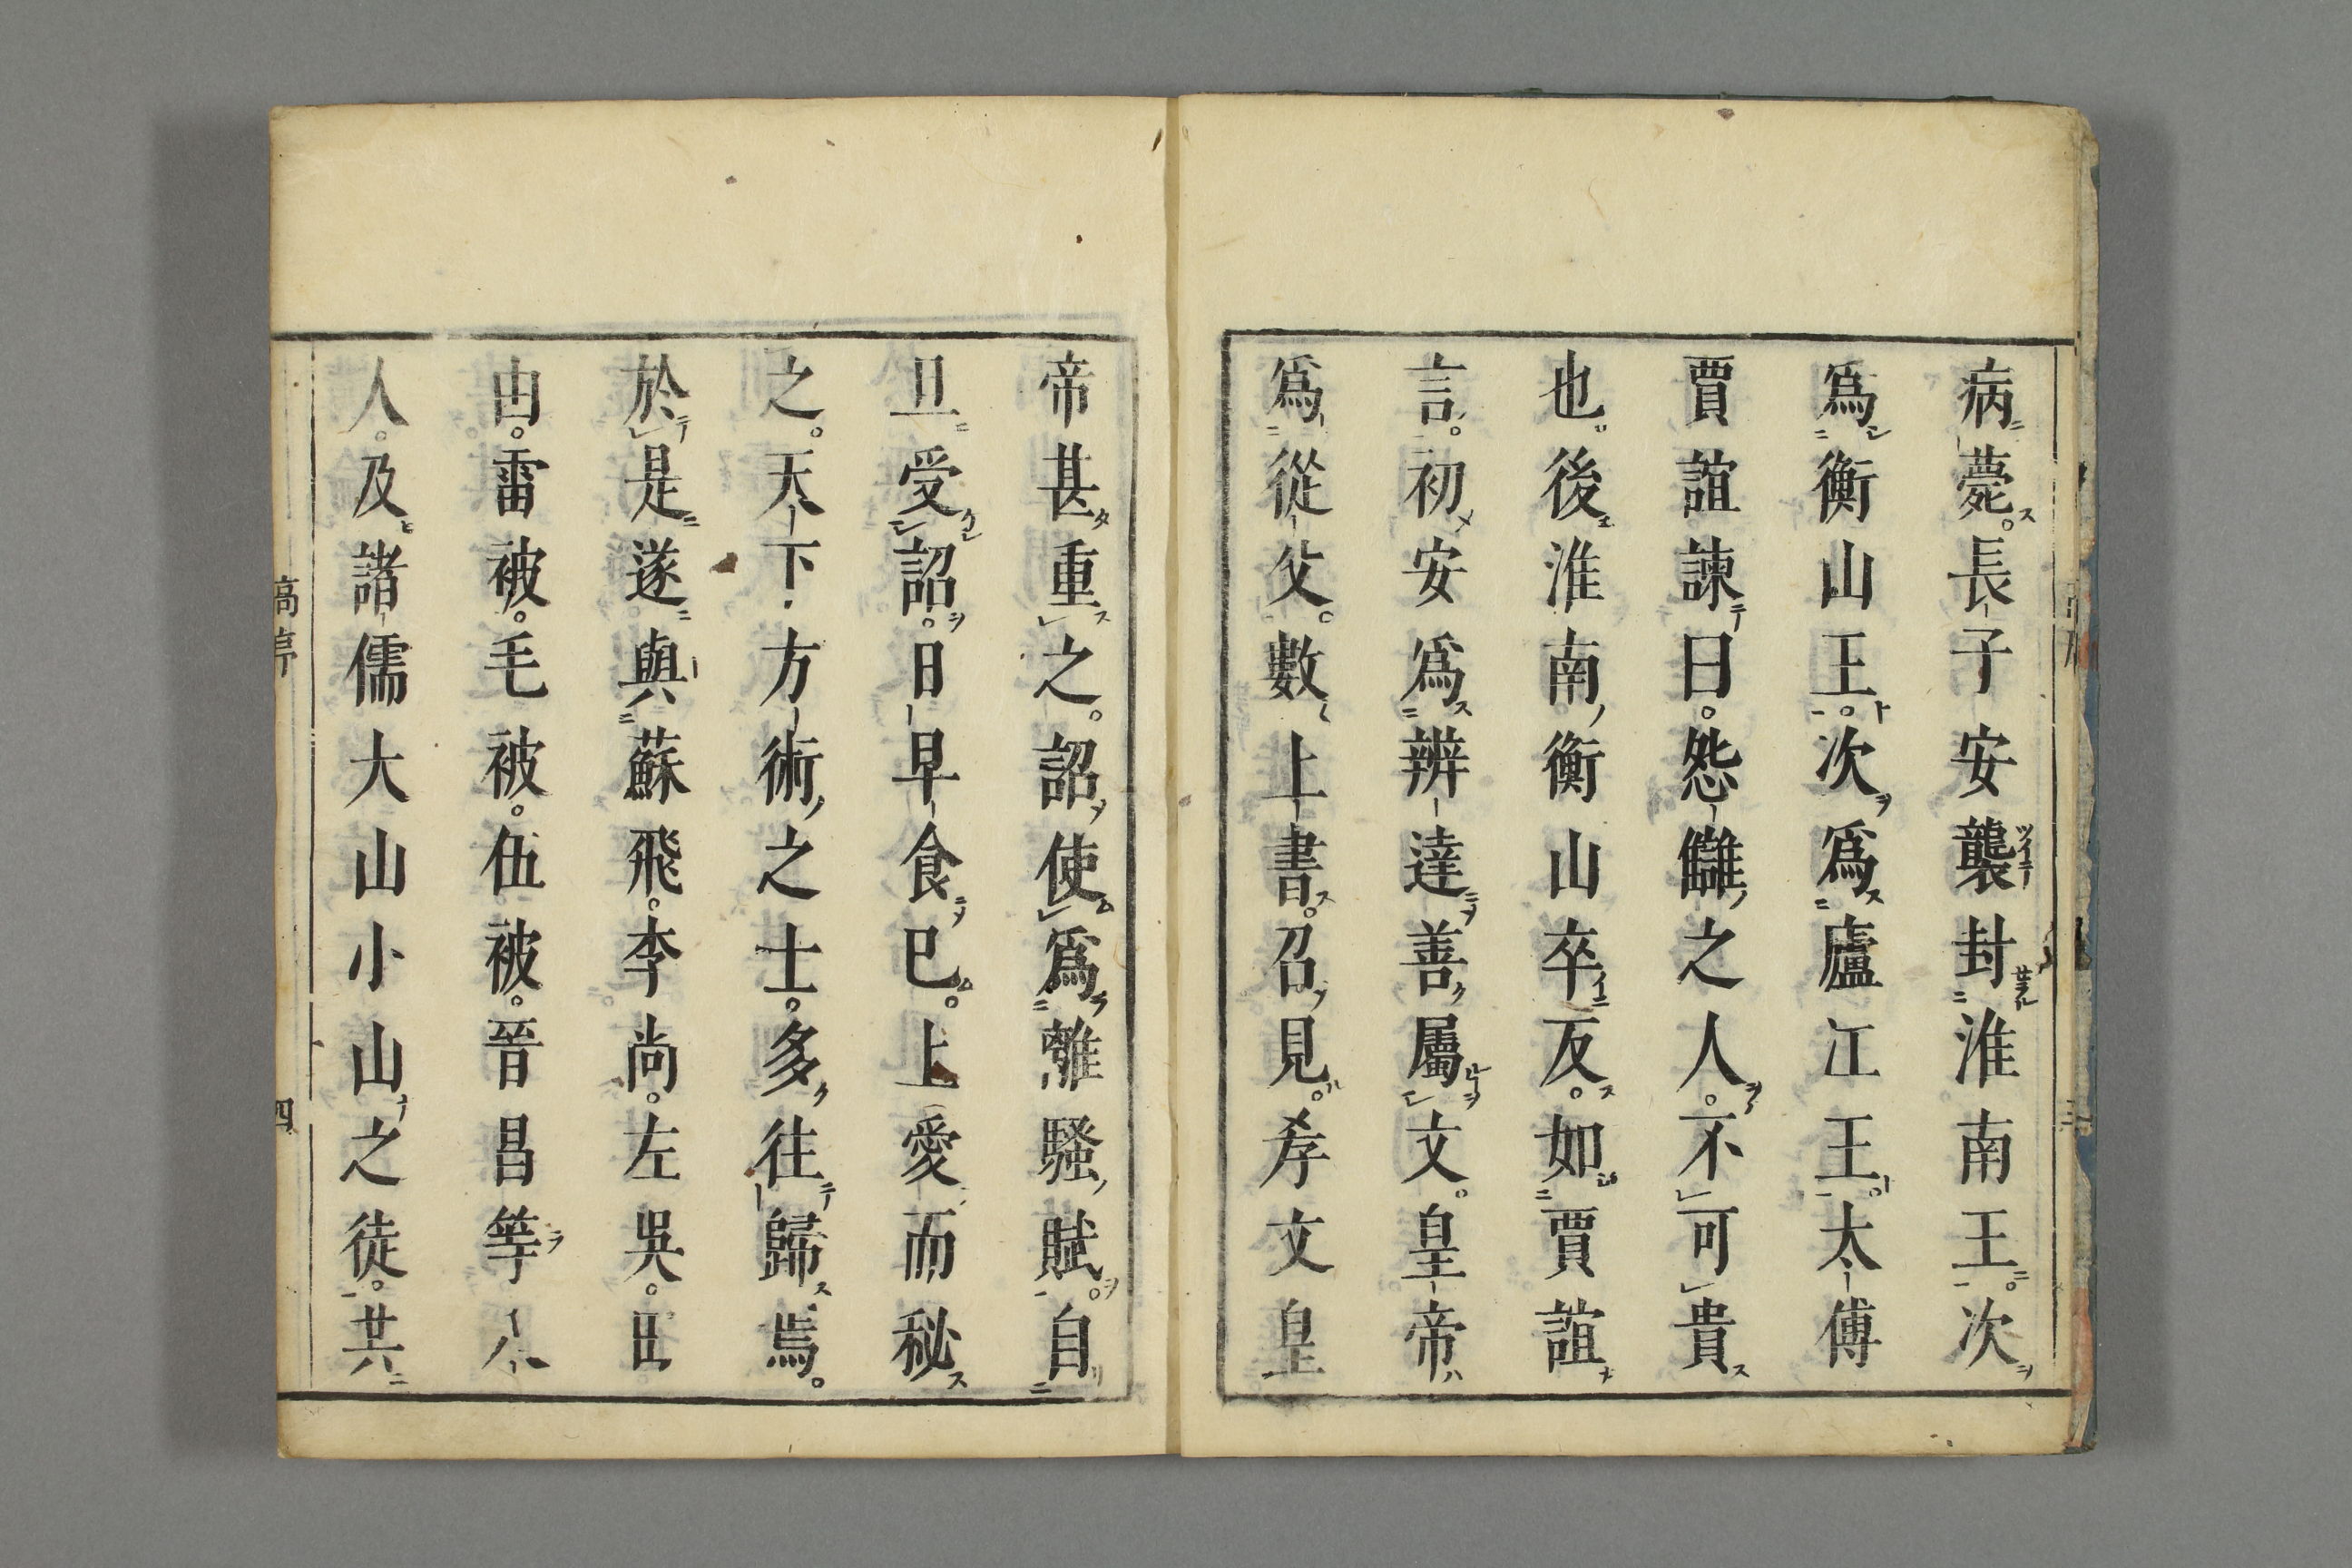 病薨。長子安襲封淮南王。次
爲衡山王。次爲廬江王。太傅
賈誼諫曰。怨讎之人。不可貴
也。後淮南衡山卒反。如賈誼
言。初安爲辨達善屬文。皇帝
爲從父。數上書。召見。孝文皇
帝甚重之。詔使爲離騷賦。自
旦受詔。日早食已。上愛而秘
之。天下方術之士。多往歸焉。
於是遂與蘇飛。李尚。左吳。田
由。雷被。毛被。伍被。晉昌等八
人。及諸儒大山小山之徒。共
高亭
四